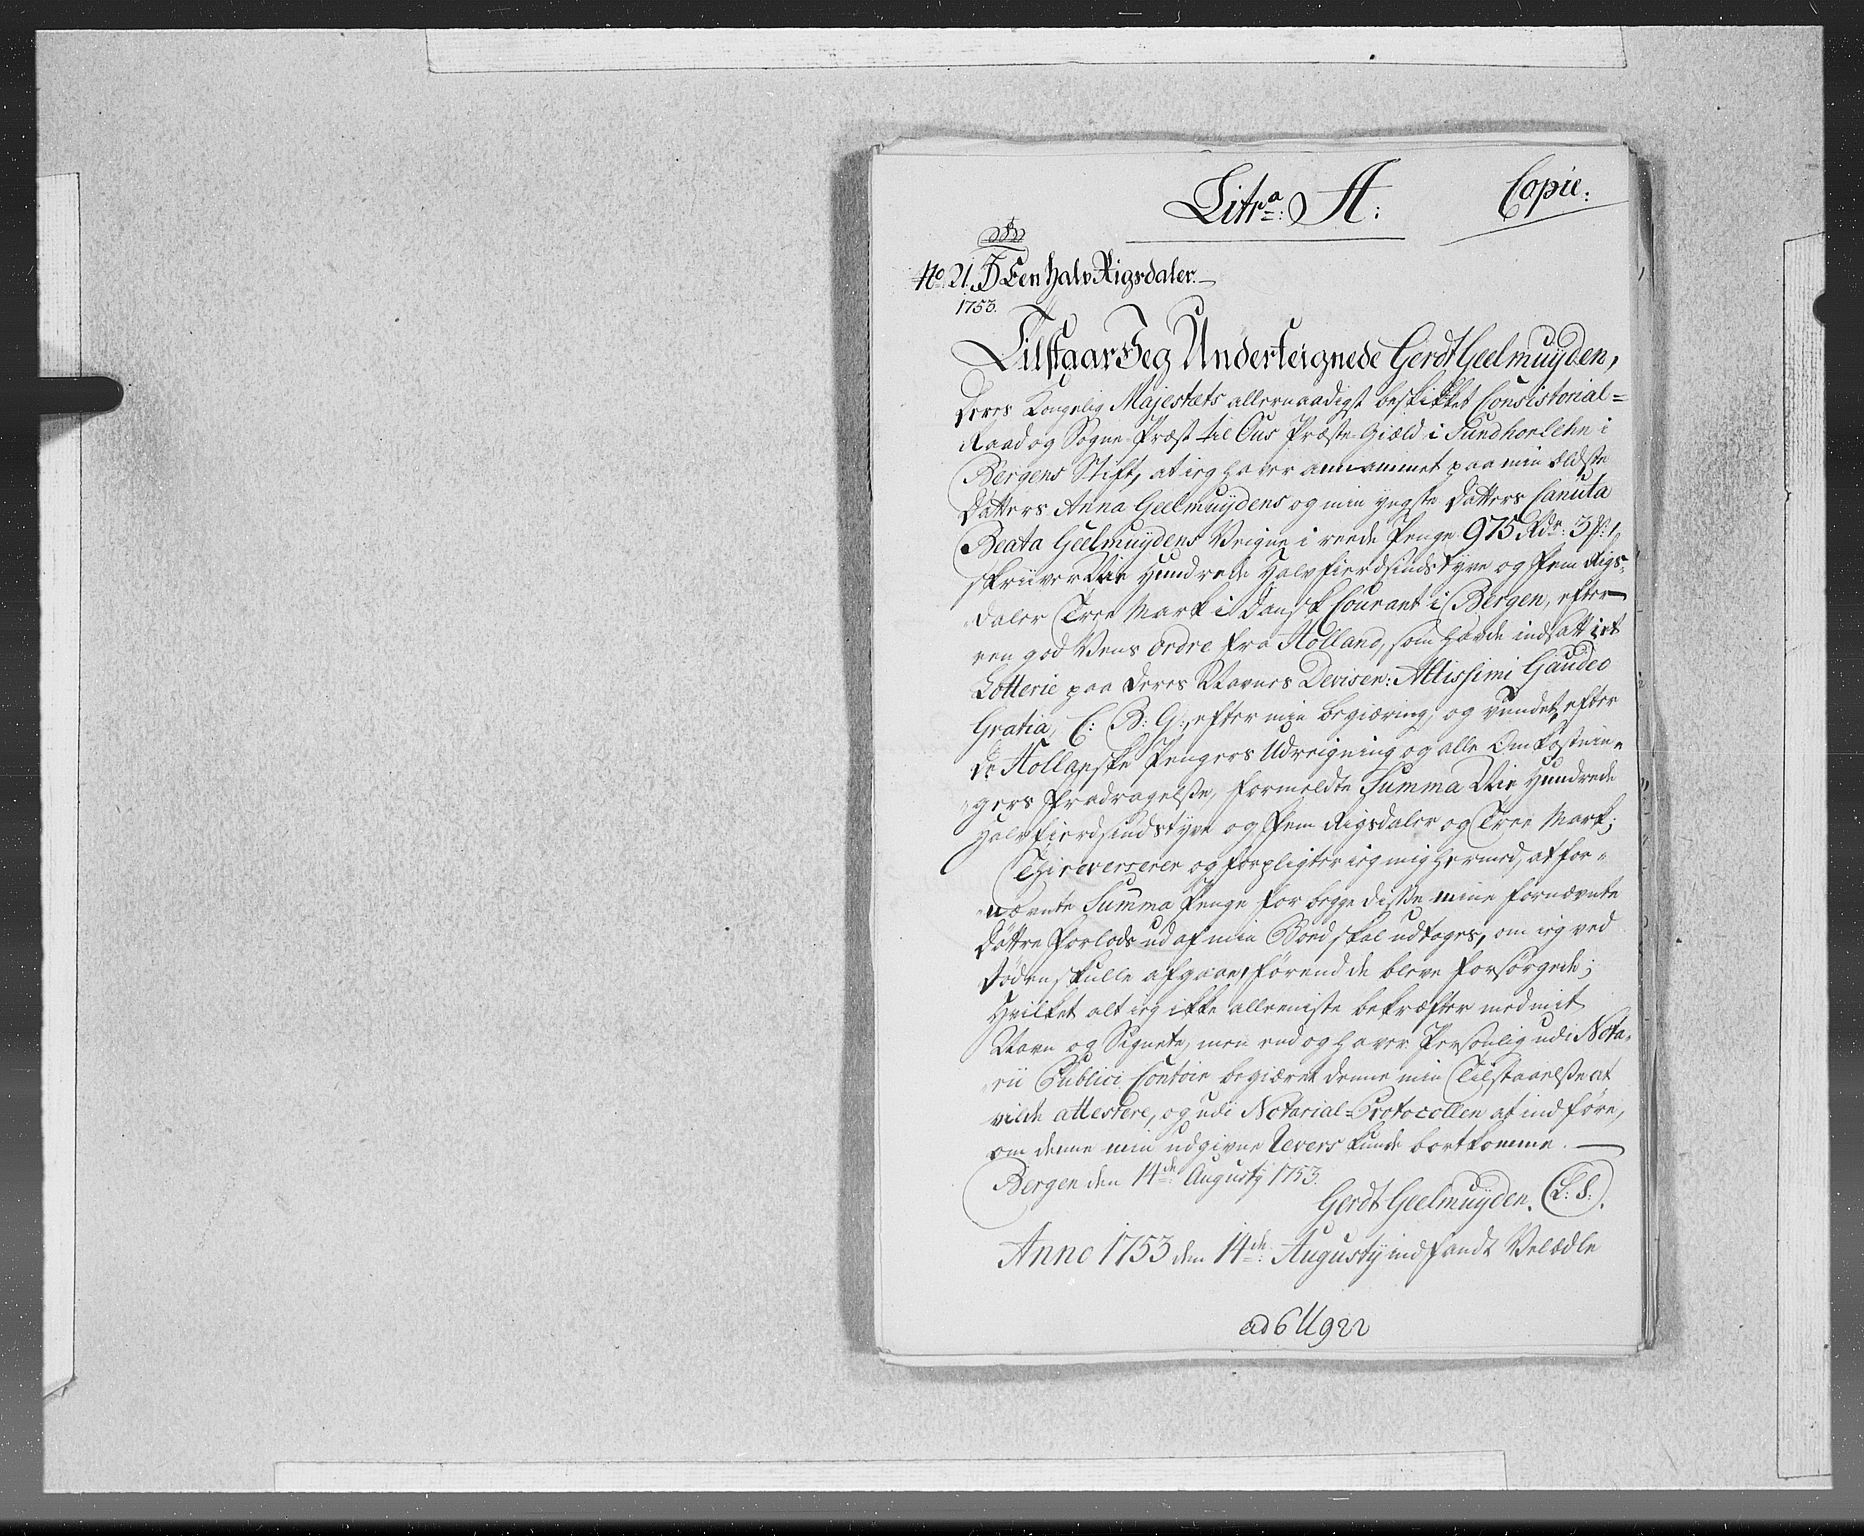 Litra: A:
Copie:
No. 21. Een halv Rigsdaler.
1753.
Tilstaar Jeg Underteignede Gerdt Geelmuyden,
Deres Kongelig Majestæts allernaadigst beskikket Consistorial=
Raad og Sogne-Præst til Ous Præste-Gield i Sundhorlehn i
Bergens Stift, at ieg haver annammet paa min ældste
Datters Anna Geelmuydens og min yngste Datters Canuta
Beata Geelmuydens Veigne i reede Penge 975 Rdr: 3 ß:
skriiver Nie Hundrede Halvfierdsindstyve og Fem Rigs-
daler Tree Mark i Dansk Courant i Bergen, efter
een god Vens ordre fra Holland, som havde indsatt i et
Lotterie paa deres Navnes Devisen: Altissimi Gaudeo
Gratia, C: B: G: efter min begiæring, og vundet, efter
de Hollanske Pengers Udreigning og alle Omkostnin-
gers Fradragelse, formeldte Summa Nie Hundrede
Halvfierdsindstyve og Fem Rigsdaler og Tree Mark;
Thi reverserer og forpligter ieg mig hermed, at for-
nævnte Summa Penge for begge disse mine fornævnte
Døttre forlods ud af min Boed skal udtages, om ieg ved
Døden skulle afgaae, førend de bleve forsørgede;
Hvilket alt ieg ikke alleeniste bekræfter med mit
Navn og Signete, men end og haver Personlig udi Nota-
rii Publici Contoir begiæret denne min Tilstaaelse at
vilde attestere, og udi Notarial-Protocollen at indføre,
om denne min udgivne Revers kunde bortkomme.
Bergen den 14de Augusty 1753.
Gerdt Geelmuyden. (L: S:).
Anno 1753 den 14de: Augusty indfandt Velædle
ad 6 U 922